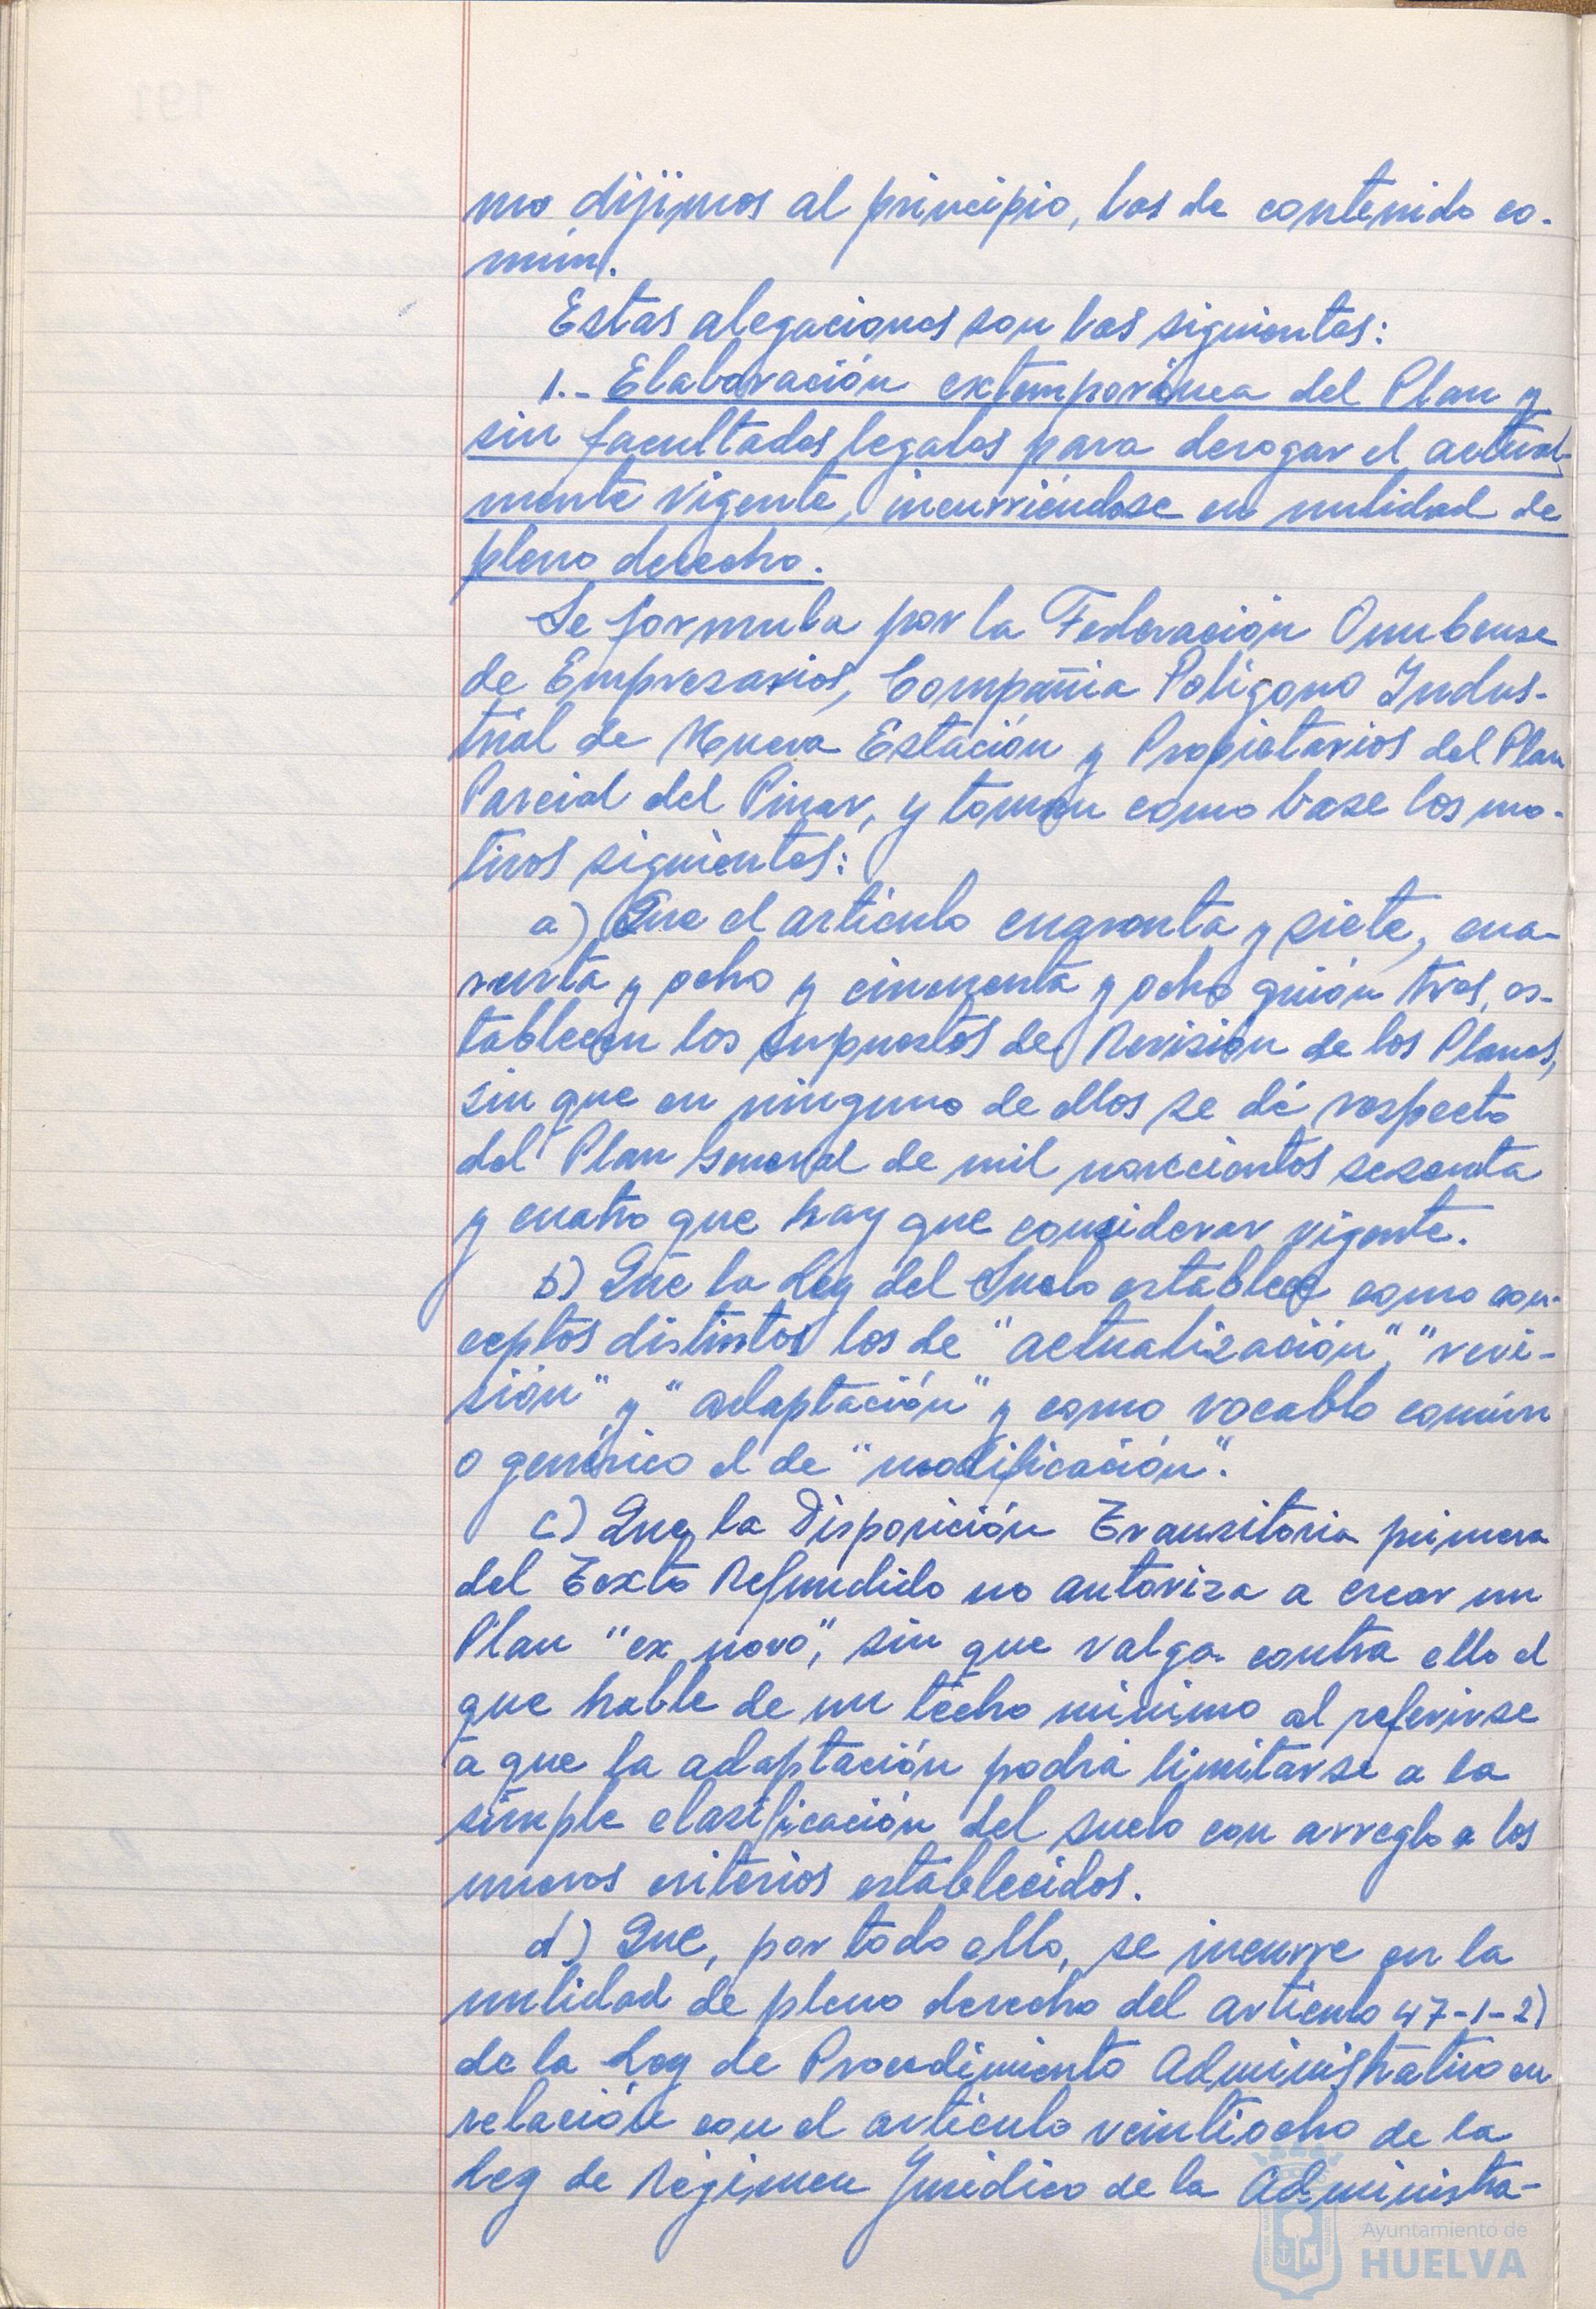 mo dijimos al principio, las de contenido co-
mún.
Estas alegaciones son las siguientes:
1.- Elaboración extemporánea del Plan y
sin facultades legales para derogar el actual-
mente vigente, incurriéndose en nulidad de
pleno derecho.
Se formula por la Federación Onubense
de Empresarios, Compañia Poligono Indus-
trial de Nueva Estación y Propietarios del Plan
Parcial del Pinar, y toman como base los mo-
tivos siguientes:
a) Que el artículo cuarenta y siete, cua-
renta y ocho y cincuenta y ocho guión tres, es-
tablecen los supuestos de Revisión de los Planes,
sin que en ninguno de ellos se dé respecto
del Plan General de mil novecientos sesenta
y cuatro que hay que considerar vigente.
b) Que la Ley del Suelo establece como con-
ceptos distintos los de "actualización", "revi-
sión" y "adaptación" y como vocablo común
o genérico el de "modificación".
c) Que la Disposición Transitoria primera
del Texto Refundido no autoriza a crear un
Plan "ex novo", sin que valga contra ello el
que hable de un techo mínimo al referirse
a que la adaptación podrá limitarse a la
simple clasificación del suelo con arreglo a los
nuevos criterios establecidos.
d) Que, por todo ello, se incurre en la
nulidad de pleno derecho del artículo 47-1-2)
de la Ley de Procedimiento Administrativo en
relación con el artículo veintiocho de la
Ley de Régimen Jurídico de la Administra-
Ayuntamiento de
HUELVA